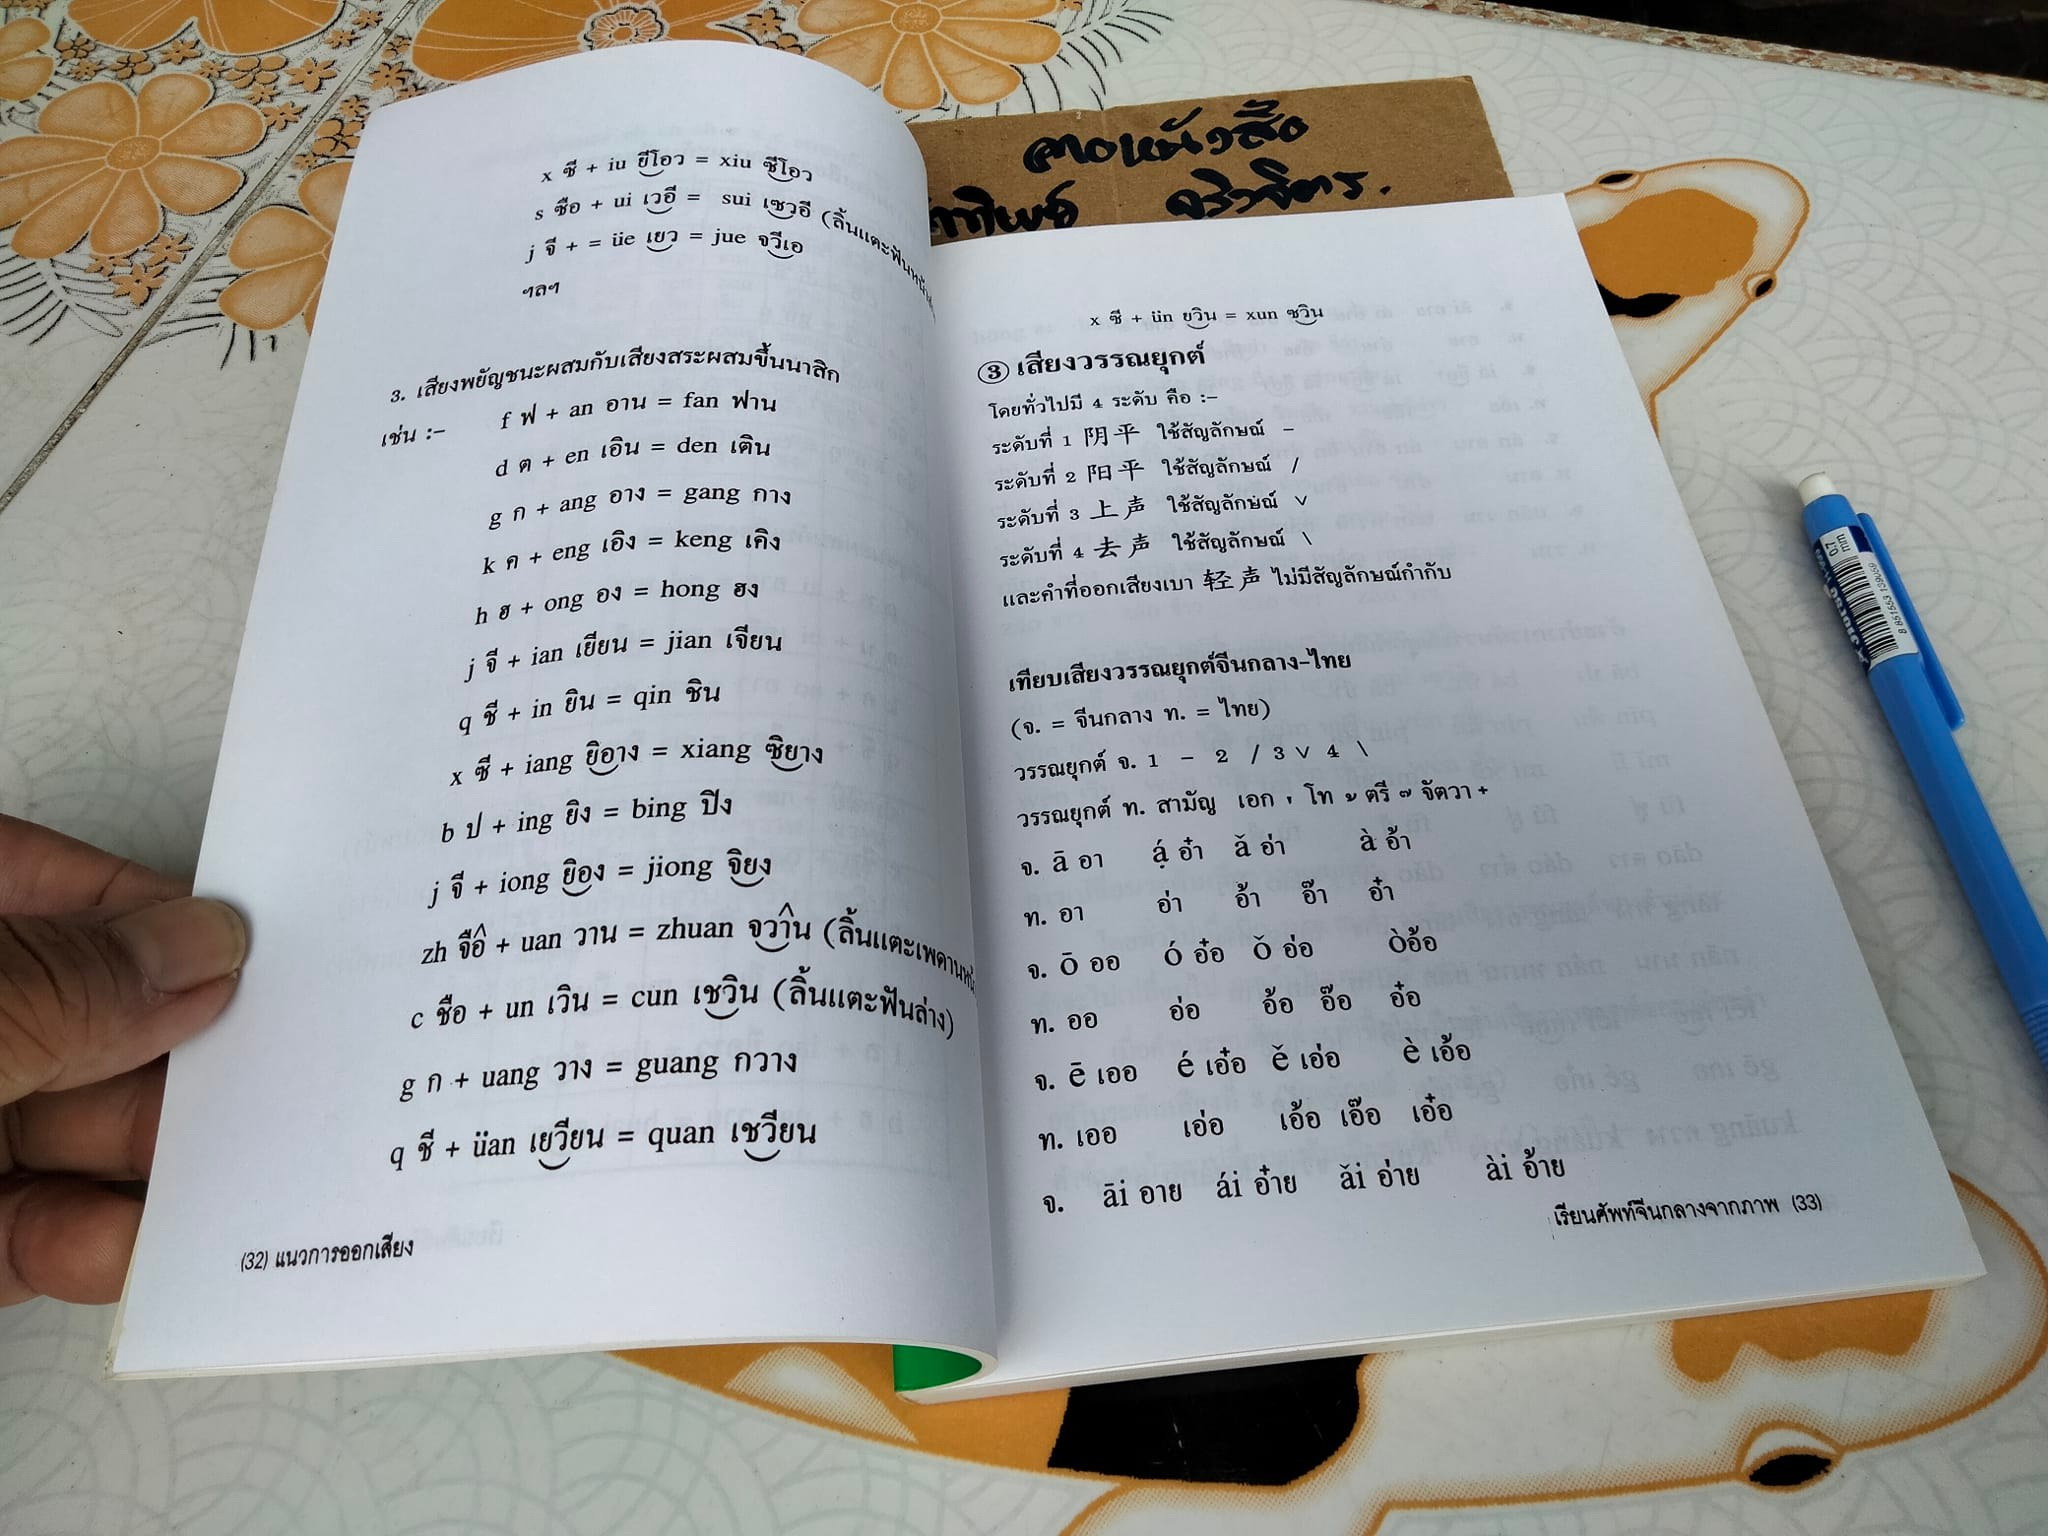 x ซี + iu ยีโอว = xiu ซีโอว
s ซือ + ui เวอี = sui เซวอี (ลิ้นแตะฟันหน้า
j จี + = üe เยว = jue จวีเอ
ฯลฯ
3. เสียงพยัญชนะผสมกับเสียงสระผสมขึ้นนาสิก
เช่น :– f ฟ + an อาน = fan ฟาน
d ต + en เอิน = den เติน
g ก + ang อาง = gang กาง
k ค + eng เอิง = keng เคิง
h ฮ + ong อง = hong ฮง
j จี + ian เยียน = jian เจียน
q ชี + in ยิน = qin ชิน
x ซี + iang ยิอาง = xiang ซิยาง
b ป + ing ยิง = bing ปิง
j จี + iong ยิออง = jiong จิยง
zh จือ̂ + uan วาน = zhuan จวา̂น (ลิ้นแตะเพดาน
c ชือ + un เวิน = cun เชวิน (ลิ้นแตะฟันล่าง)
g ก + uang วาง = guang กวาง
q ชี + üan เยวียน = quan เชวียน
(32) แนวการออกเสียง
ตาอหนังสือ
จริวจิตร.
x ซี + ün ยวิน = xun ซวิน
③ เสียงวรรณยุกต์
โดยทั่วไปมี 4 ระดับ คือ :–
ระดับที่ 1 阴平 ใช้สัญลักษณ์ –
ระดับที่ 2 阳平 ใช้สัญลักษณ์ /
ระดับที่ 3 上声 ใช้สัญลักษณ์ ∨
ระดับที่ 4 去声 ใช้สัญลักษณ์ \
และคำที่ออกเสียงเบา 轻声 ไม่มีสัญลักษณ์กำกับ
เทียบเสียงวรรณยุกต์จีนกลาง–ไทย
(จ. = จีนกลาง ท. = ไทย)
วรรณยุกต์ จ. 1 – 2 / 3 ∨ 4 \
วรรณยุกต์ ท. สามัญ เอก ่ โท ้ ตรี ๊ จัตวา ๋
จ. ā อา á อ๋า ǎ อ่า à อ้า
ท. อา อ่า อ้า อ๊า อ๋า
จ. ō ออ ó อ๋อ ǒ อ่อ ò อ้อ
ท. ออ อ่อ อ้อ อ๊อ อ๋อ
จ. ē เออ é เอ๋อ ě เอ่อ è เอ้อ
ท. เออ เอ่อ เอ้อ เอ๊อ เอ๋อ
จ. āi อาย ái อ๋าย ǎi อ่าย ài อ้าย
เรียนศัพท์จีนกลางจากภาพ (33)
0.7 mm